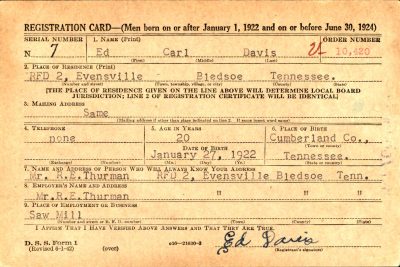 REGISTRATION CARD—(Men born on or after January 1, 1922 and on or before June 30, 1924)
SERIAL NUMBER 1. NAME (Print) ORDER NUMBER
N 7 Ed Carl Davis 10,420
(First) (Middle) (Last)
2. PLACE OF RESIDENCE (Print)
RFD 2, Evensville Bledsoe Tennessee.
(Number and street) (Town, township, village, or city) (County) (State)
[THE PLACE OF RESIDENCE GIVEN ON THE LINE ABOVE WILL DETERMINE LOCAL BOARD
JURISDICTION; LINE 2 OF REGISTRATION CERTIFICATE WILL BE IDENTICAL]
3. MAILING ADDRESS
Same
(Mailing address if other than place indicated on line 2. If same insert word same)
4. TELEPHONE 5. AGE IN YEARS 6. PLACE OF BIRTH
none 20 Cumberland Co.,
DATE OF BIRTH (Town or county)
January 27, 1922 Tennessee.
(Exchange) (Number) (Mo.) (Day) (Yr.) (State or country)
7. NAME AND ADDRESS OF PERSON WHO WILL ALWAYS KNOW YOUR ADDRESS
Mr. R.E.Thurman RFD 2, Evensville Bledsoe Tenn.
8. EMPLOYER'S NAME AND ADDRESS
Mr.R.E.Thurman " " "
9. PLACE OF EMPLOYMENT OR BUSINESS
Saw Mill
(Number and street or R. F. D. number) (Town) (County) (State)
I AFFIRM THAT I HAVE VERIFIED ABOVE ANSWERS AND THAT THEY ARE TRUE.
D. S. S. Form 1
(Revised 6-1-42) (over) Ed Davis
(Registrant's signature)